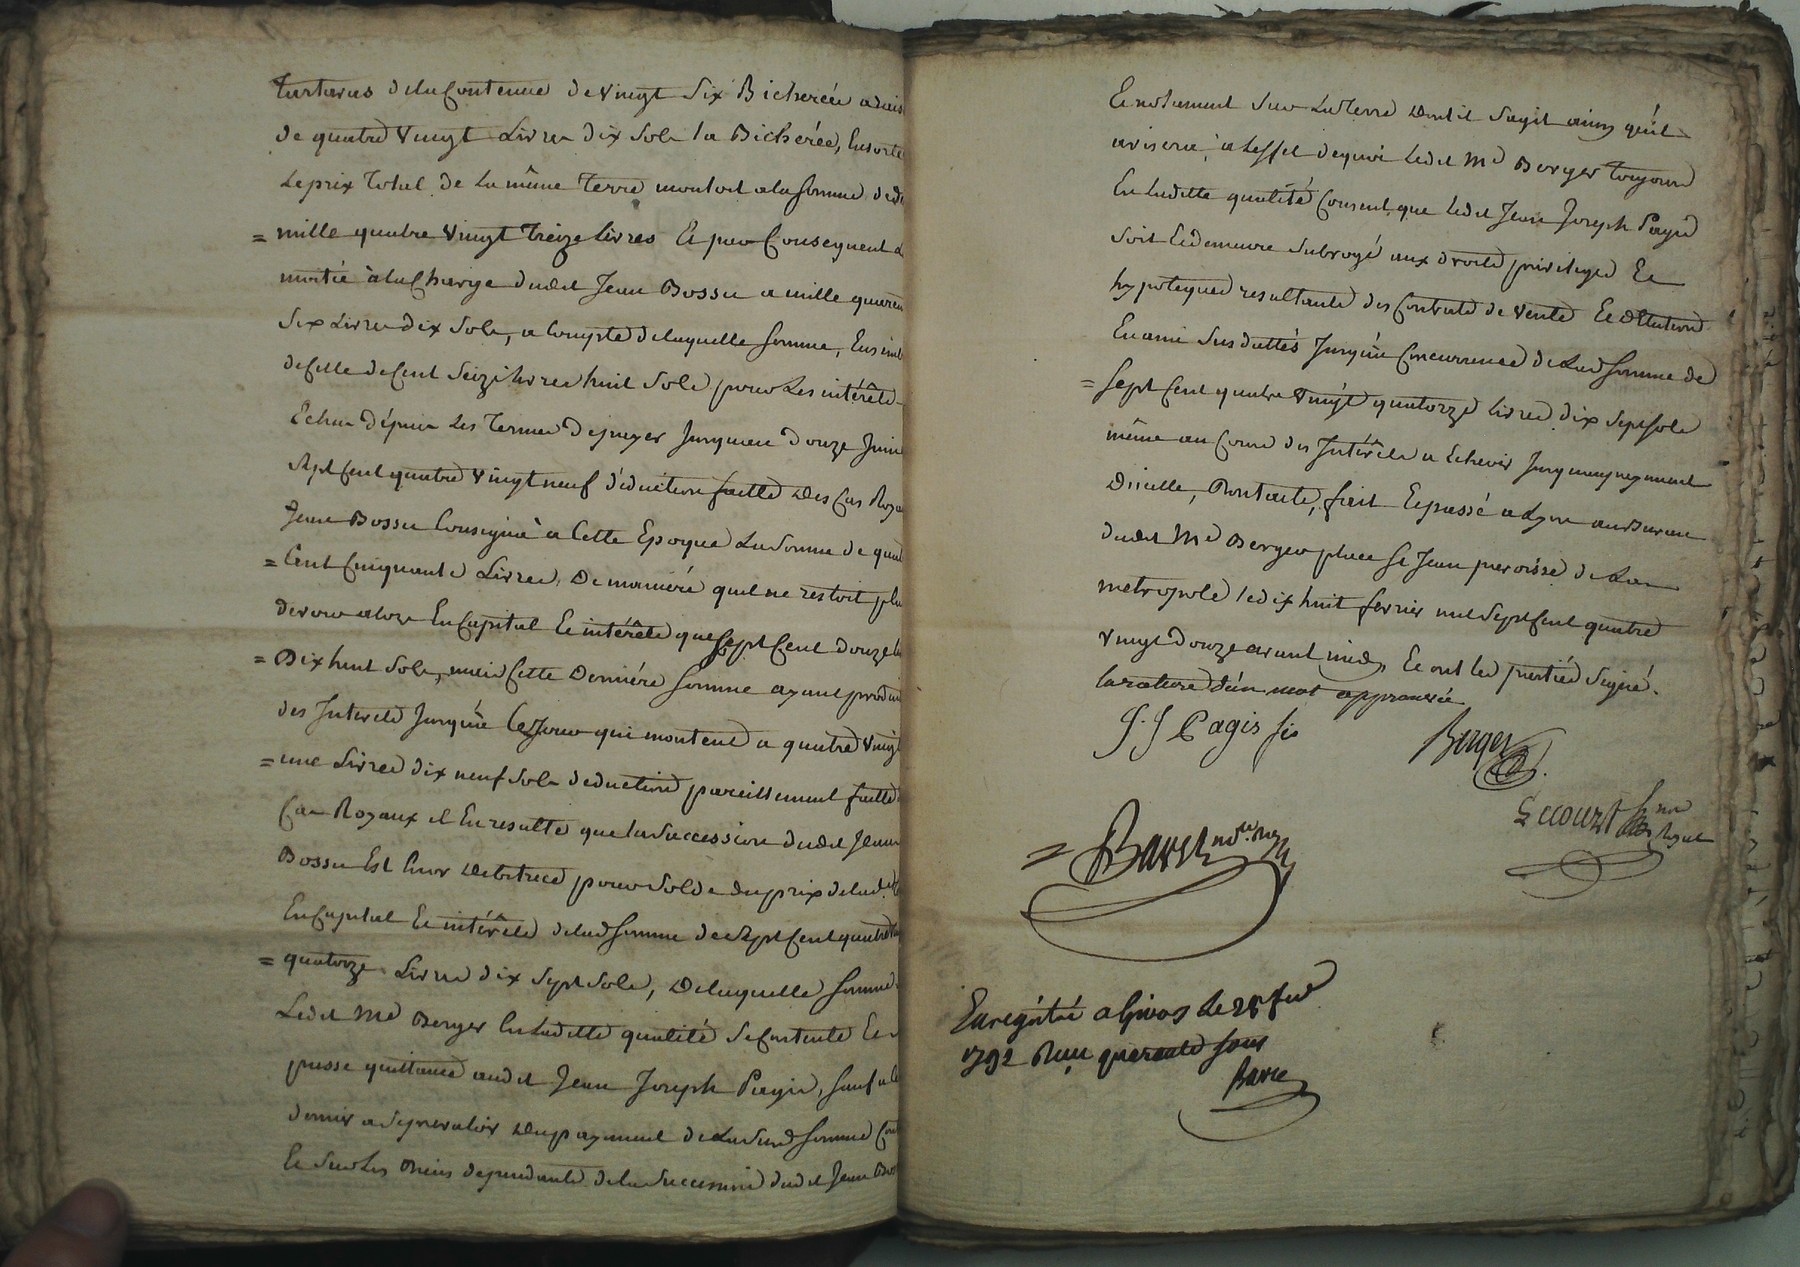 tartaras de la Contenue de vingt Six Bicherées a rais
de quatre vingt Livres dix Sols la Bicherée, Ensorte
Le prix Total de La même Terre montoit a la Somme de d
= mille quatre vingt treize livres Et par Consequent
moitié à la Charge dudit Jean Bossu a mille quaran
Six Livres dix Sols, a Compte de laquelle Somme, Ensemb
de Celle de Cent Seize livres huit Sols pour Les intérêts
Echus dépuis Les Termes de payer Jusqu'au douze Juin
Sept Cent quatre vingt neuf déduction faitte Des Cas Roya
Jean Bossu Consigna à Cette Epoque La Somme de qua
= Cent Cinquante Livres, De maniéré quil ne restoit plu
devoir alors En Capital Et intérêts que Sept Cent douze
= Dix huit Sols, mais Cette Derniére Somme ayant produi
des Interets Jusqu'à Ce Jour qui montent a quatre vingt
= une Livres dix neuf Sols deduction pareillement faitte
Cas Royaux il En resulte que la Succession dudit Jean
Bossu Est Debitrice pour Solde du prix de lad.
En Capital Et intérêts de lad Somme de Sept Cent quatre
= quatorze Livres dix Sept Sols, De laquelle Somme
Ledit Me Berger En Laditte qualité Se Contente Et
passe quittance audit Jean Joseph Pagis, Sauf a C
dernier a Se prevaloir Du payement de La Susd Somme
Et Sur Les Biens dependants de la Succession dudit Jean
Et notament Sur Lad Terre Dont il Sagit ainsy qu'il
avisera, a Leffet dequoi Ledit Me Berger Toujours
En Laditte qualité Consent que Ledit Jean Joseph Pagis
Soit Et demeure Subrogé aux droits privileges Et
hypoteques resultants des Contrats de vente Et
Susdattés Jusqu'à Concurrence de Lad Somme de
= Sept Cent quatre vingt quatorze livres dix Sept Sols
même au Cours des Intérêts a Echevir Jusqu'au payement
Dicelle, Dont acte, fait Et passé a Lyon au Bureau
dudit Me Berger place St Jean paroisse de La
metropole Le dix huit fevrier mil Sept Cent quatre
vingt Douze avant midy Et ont Les parties Signé.
la rature d'un mot approuvée
J. J Pagis fis
Berger
= Baret nore. Roy
Enregistré a Givors Le 28 fev
1792 Reçu quarante Sous